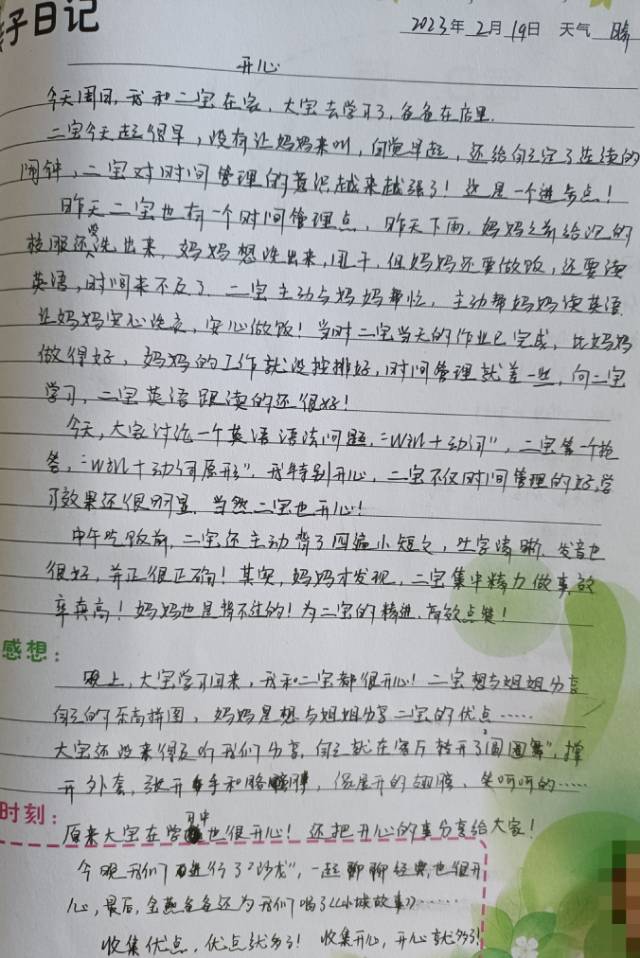 子日记
2023年2月19日 天气 晴
开心
今天周日,我和二宝在家,大宝去学习了,爸爸在店里.
二宝今天起很早,没有让妈妈来叫,自觉早起,还给自己定了连续的
闹钟,二宝对时间管理的意识越来越强了!这是一个进步点!
昨天二宝也有一个时间管理点,昨天下雨,妈妈之前给记的
校服还没洗出来,妈妈想洗出来,甩干,但妈妈还要做饭,还要读
英语,时间来不及了.二宝主动与妈妈帮忙,主动帮妈妈读英语.
让妈妈安心洗衣,安心做饭!当时二宝当天的作业已完成,比妈妈
做得好,妈妈的工作就没排好,时间管理就差一些,向二宝
学习,二宝英语跟读的还很好!
今天,大家讨论一个英语语法问题,"will+动词",二宝第一个抢
答,"will+动词原形".我特别开心,二宝不仅时间管理的好,学
习效果还很明显.当然二宝也开心!
中午吃饭前,二宝还主动背了四篇小短文,吐字清晰.发音也
很好,并且很正确!其实,妈妈才发现,二宝集中精力做事效
率真高!妈妈也是挡不住的!为二宝的精进、高效点赞!
感想:
晚上,大宝学习回来,我和二宝都很开心!二宝想与姐姐分享
自己的乐高拼图,妈妈是想与姐姐分享二宝的优点……
大宝还没来得及听我们分享,自己就在客厅转开了"圆圈舞",撑
开外套,张开手和胳膊,像展开的翅膀,笑呵呵的……
时刻:
原来大宝在学习中也很开心!还把开心的事分享给大家!
今晚我们进行了"沙龙",一起聊聊经典,也很开
心,最后,爸爸还为我们唱了《小城故事》……
收集优点,优点就多了!收集开心,开心就多了!